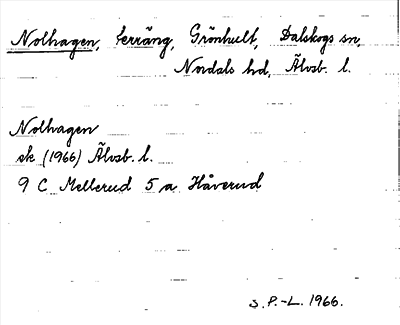 Nolhagen, terräng, Grönhult, Dalskogs sn,
Nordals hd, Älvsb. l.
Nolhagen
ek (1966) Älvsb. l.
9 C Mellerud 5 a Håverud
S.P.-L. 1966.